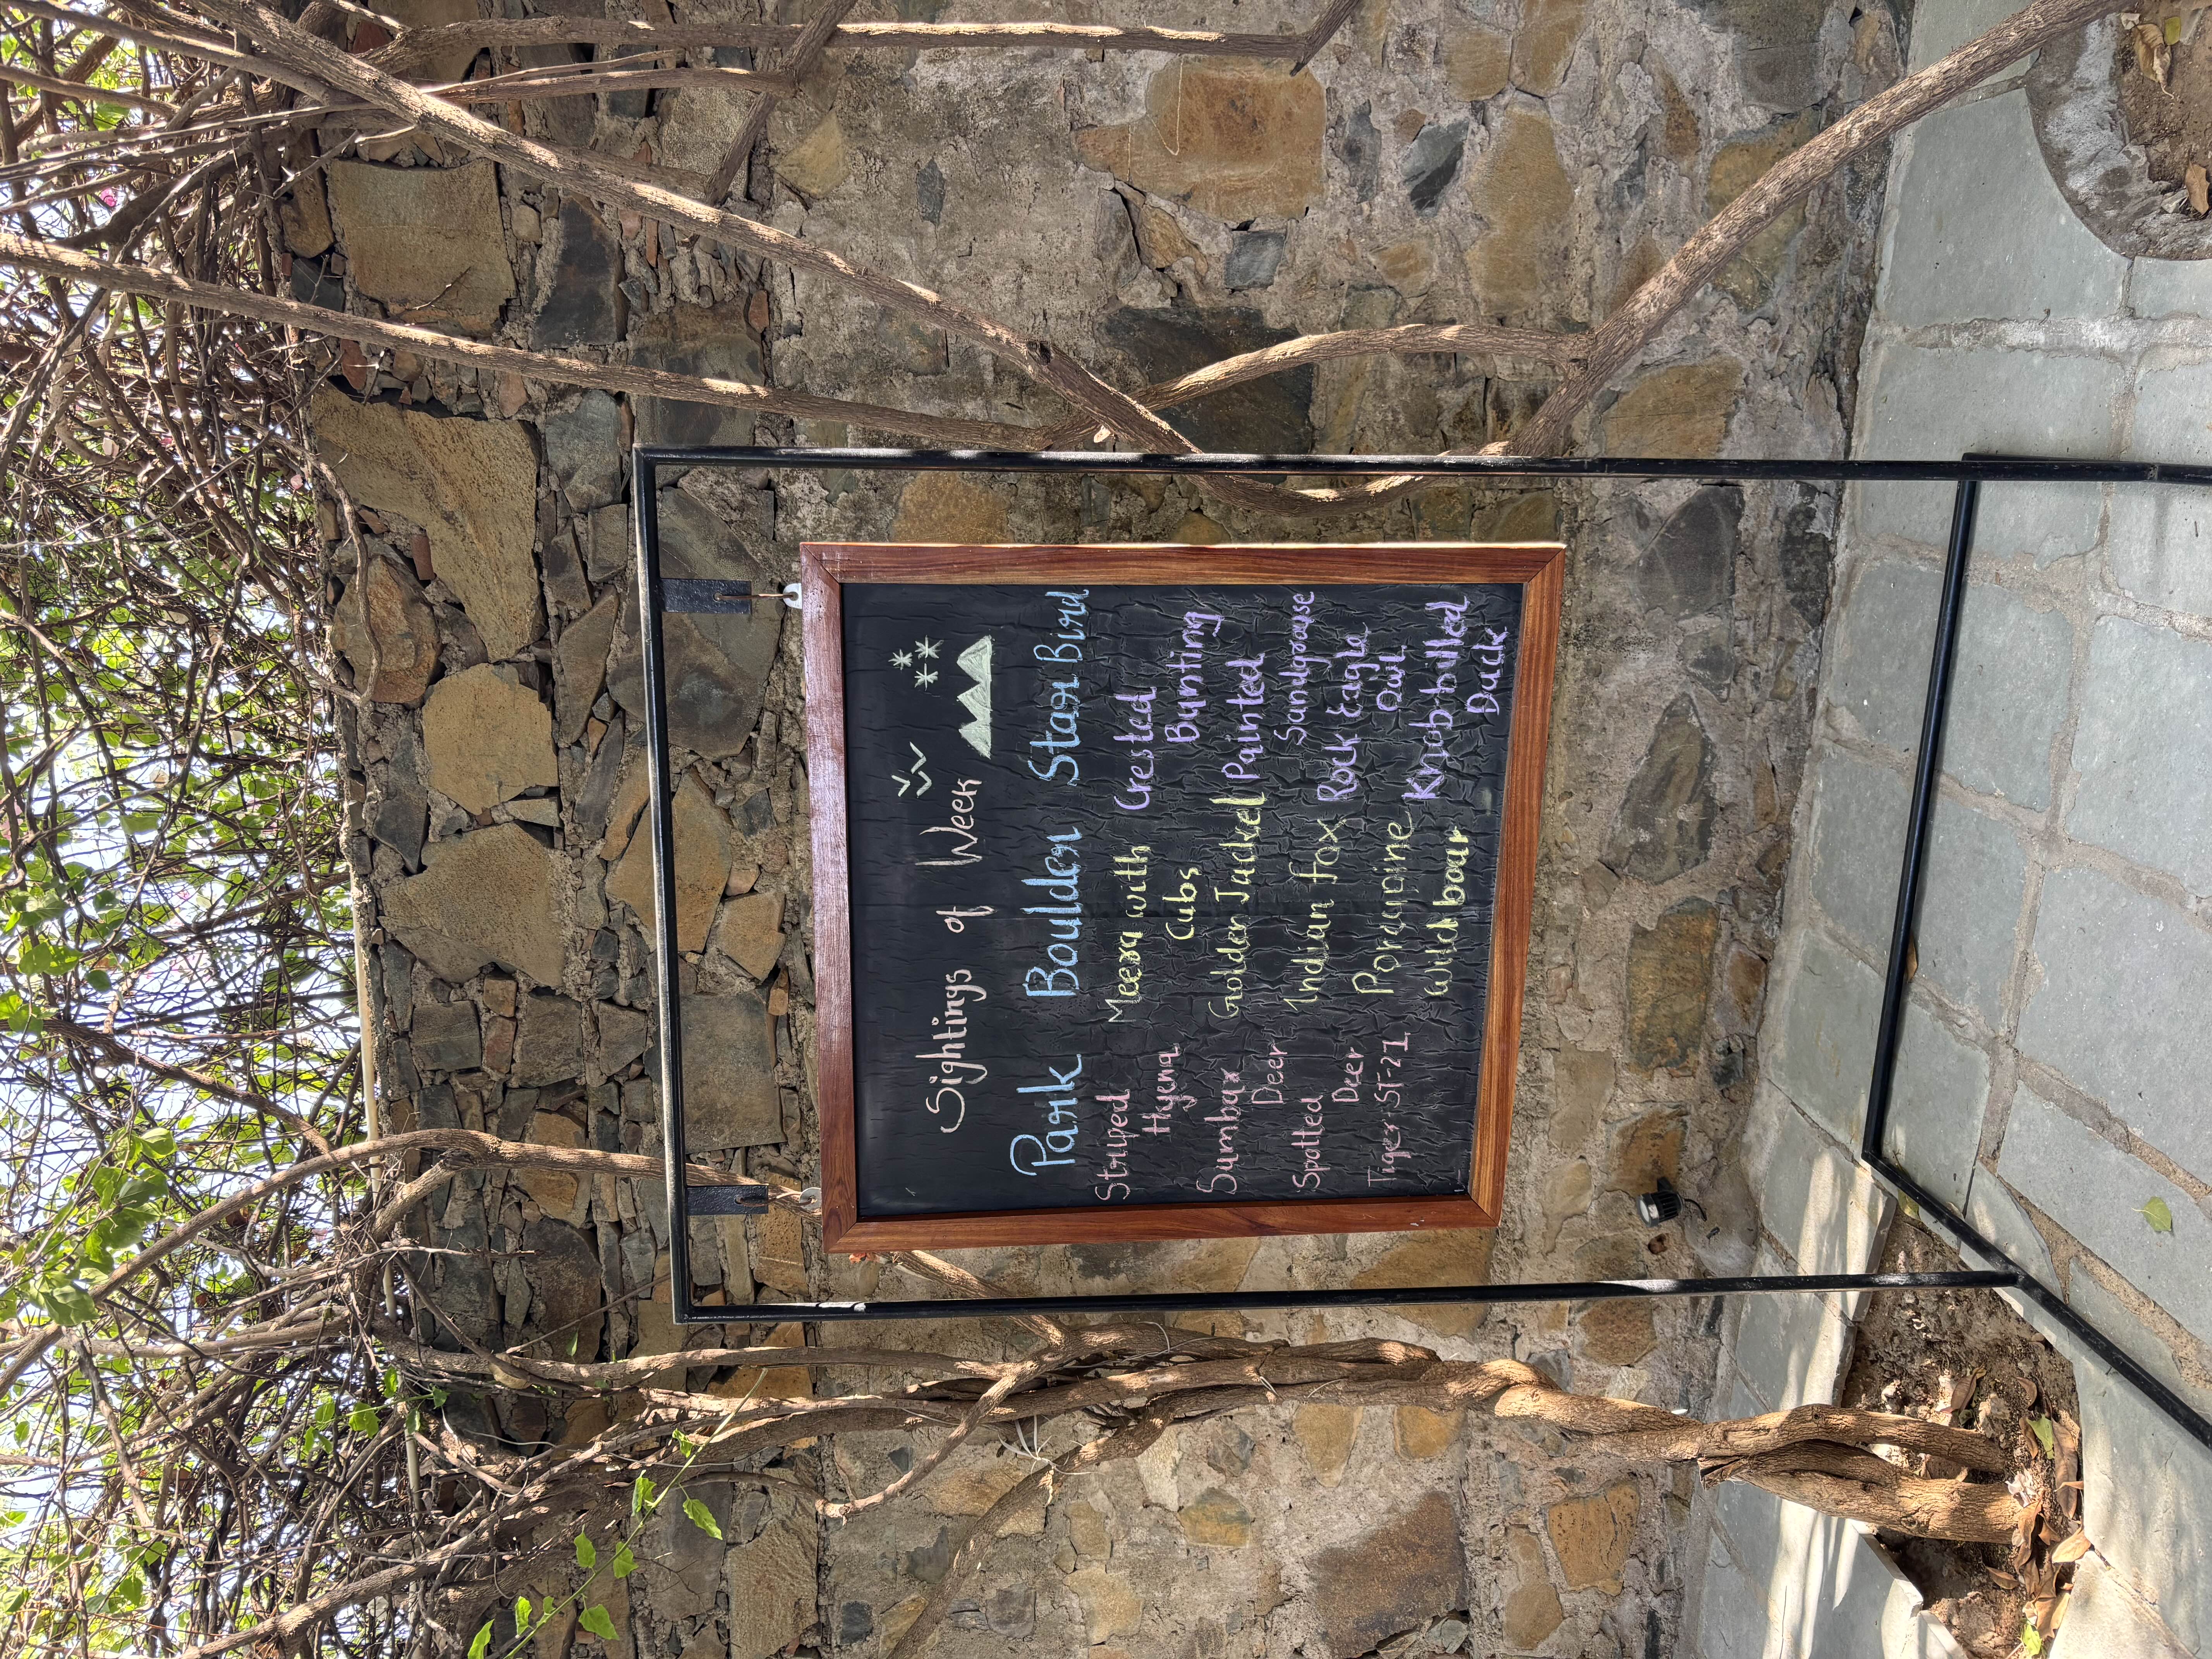 Sightings of Week
Park Boulder Star Bird
Striped
Hyena
Sumbar
Deer
Spotted
Deer
Tiger ST-21
Meera with
Cubs
Golden Jackel
Indian fox
Porcupine
Wild boar
Crested
Bunting
Painted
Sandgrouse
Rock Eagle
Owl
Knob-billed
Duck